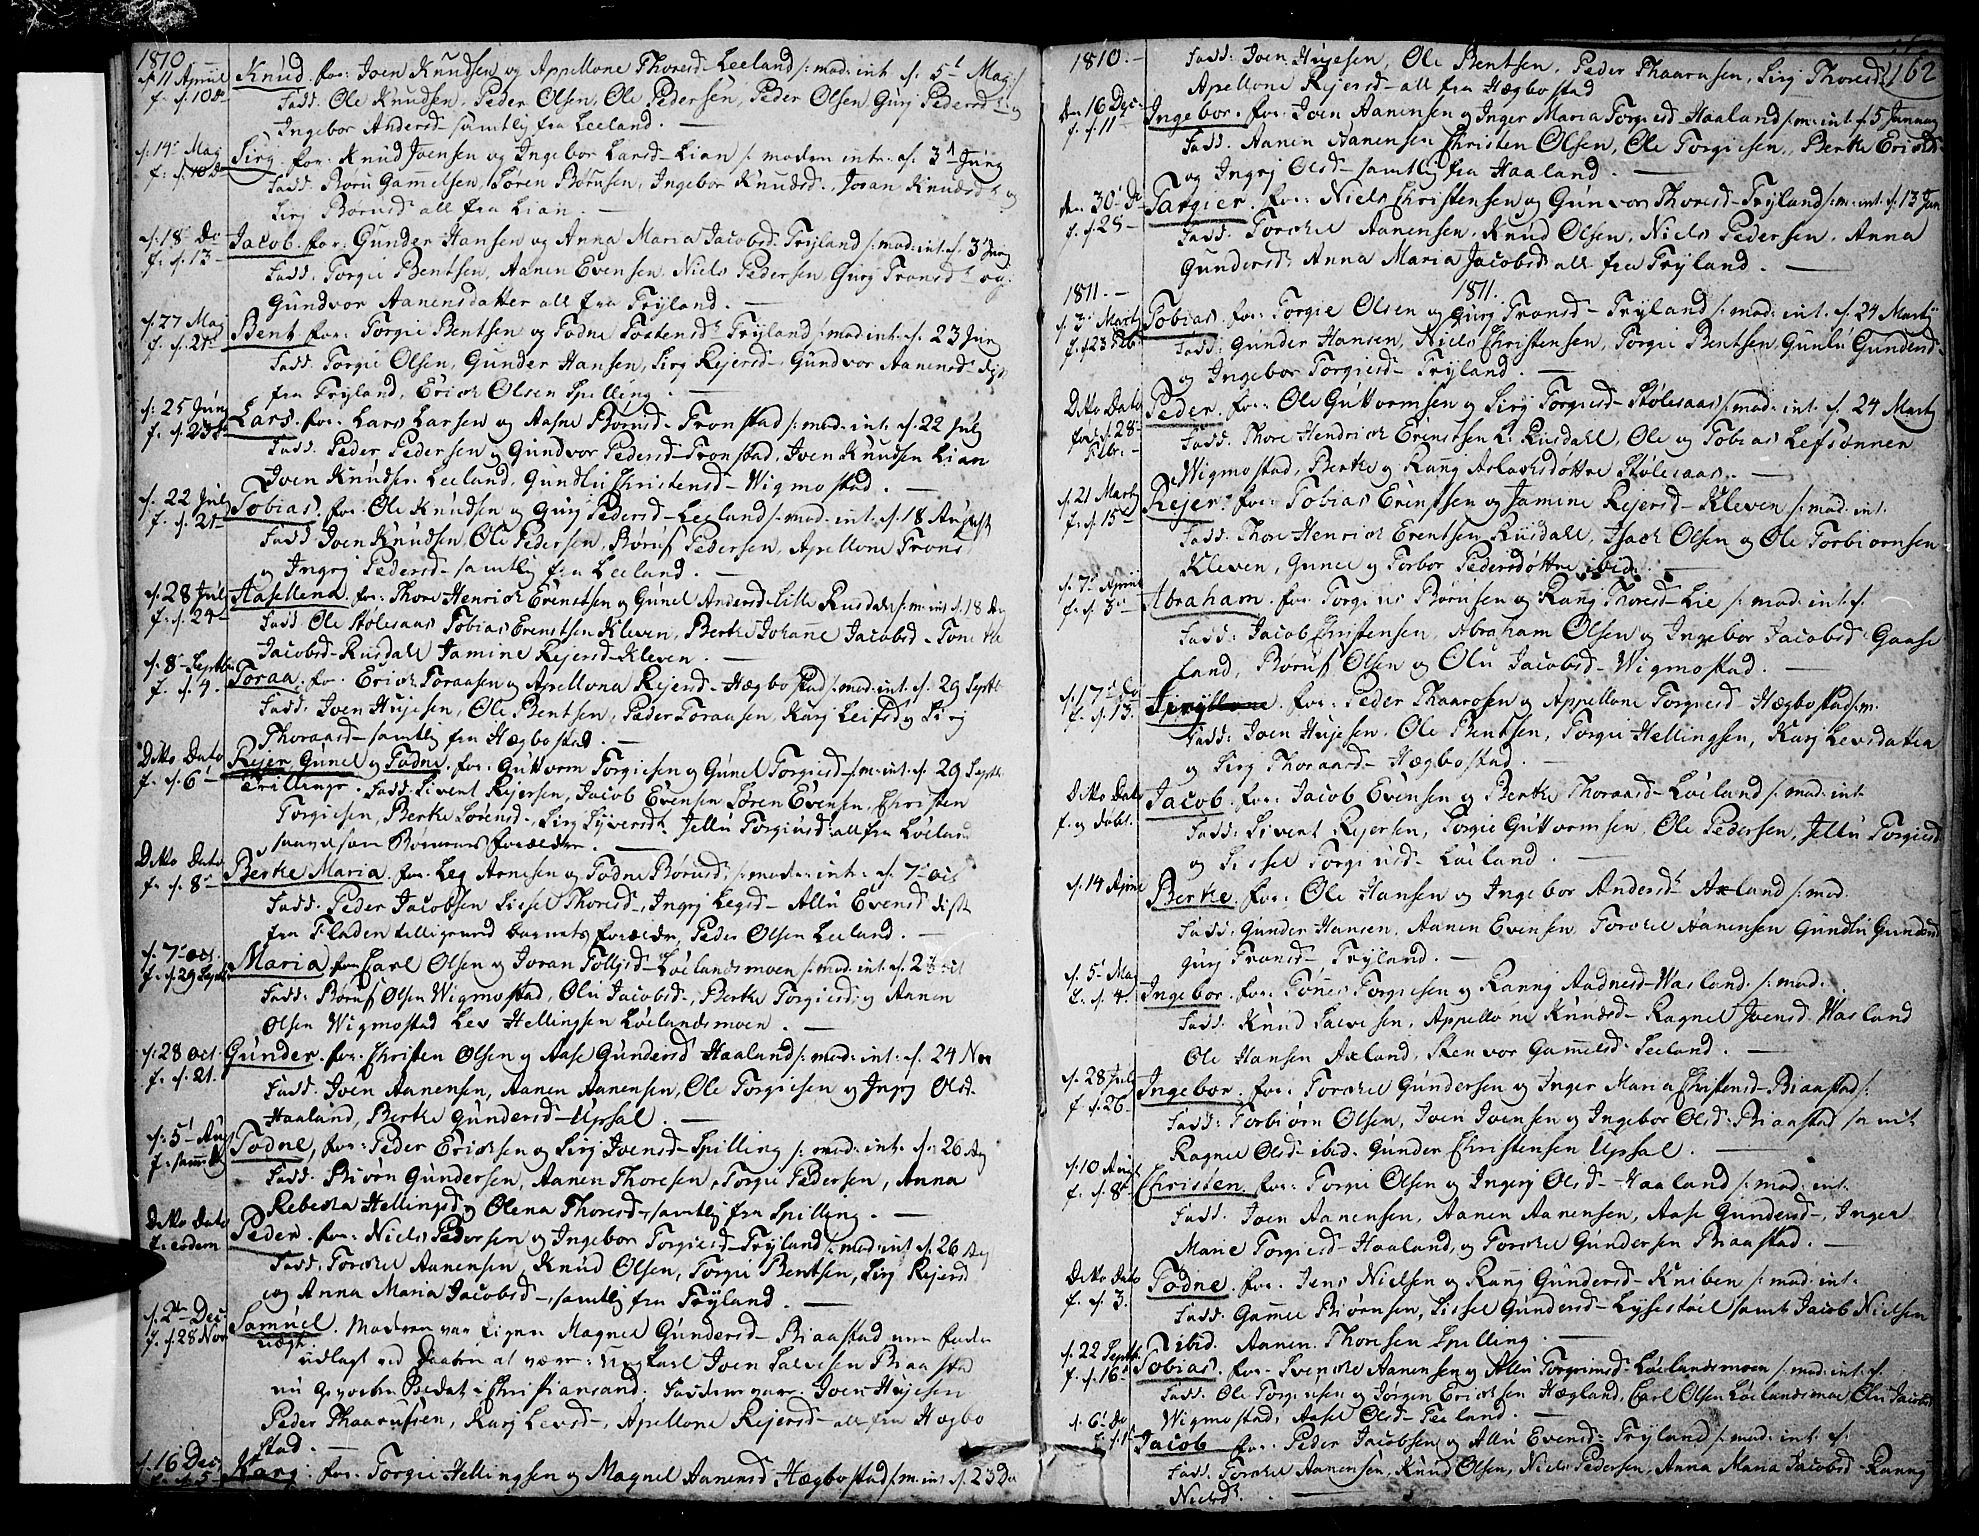 1810
d: 11 Apriil Knud. for: Joen Knudsen og Appellone Thoresd- Leeland /: mod: int. d. 5t Maj:/
f. d. 10 D- Fadd. Ole Knudsen, Peder Olsen, Ole Pedersen, Peder Olsen Gurj Pedersd- og
Ingebor Andersd- samtlig fra Leeland. —
d: 14 Maj Sirj. for: Knud Joensen og Ingebor Larsd- Lian /: moderen intr: d. 3d Junj
f: d. 10 D- Fadd. Børu Gammelsen, Søren Børusen, Ingebor Knudsd., Joran Knudsd- og
Sirj Børusd all fra Lian. —
d: 18 Do Jacob. for: Gunder Hansen og Anna Maria Jacobsd. Trÿland /: mod: int. d. 3 Junj
f: d. 13 - Fadd. Torgie Bentsen, Aanen Evensen, Niels Pedersen, Gurj Tronsd- og
Gundvor Aanensdatter all fra Trÿland. —
d: 27 Maj Bent for: Torgie Bentsen og Todne Tostensd- Trÿland /: mod: int: d. 23 Jun
f. d. 21 Fadd. Torgie Olsen, Gunder Hansen, Sirj Rejersd- Gundvor Aanensd-
fra Trÿland, Erich Olsen Spilling. —
d: 25 Junj Lars. for: Lars Larsen og Aasne Børusd- Tronstad /: mod: int: d. 22 Julj
f. d. 23 Fadd. Peder Pedersen og Gundvor Pedersd- Tronstad, Joen Knudsen Lian
Joen Knudsen Leeland, Gundlu Christensd- Wigmostad. —
d: 22 Julj Tobias. for: Ole Knudsen og Gurj Pedersd- Leeland /: mod: int: d. 18 August
f. d. 21 - Fadd Joen Knudsen, Ole Pedersen, Børuf Pedersen, Apellone Tronsd
og Ingrj Pedersd- samtlig fra Leeland. —
d: 28 Jul Aasellena. for: Thore Henrich Erentsen og Gunel Andersd- Lille Rusdal /: m: int d. 18 Au
f: d. 24 - Fadd Ole Stølesaas Tobias Erentsen Kleven, Berthe Johanne Jacobsd-
Jacobsd- Rusdal Jamine Rejersd- Kleven. —
d: 8 Septbr Toraa. for. Erich Toraasen og Apellona Rejersd- Hægbostad /: mod: int: d. 29 Septb
f. d. 4. Fadd. Joen Hujesen, Ole Bentsen, Peder Toraasen, Karj Leifsd og Sirj
Thoraasd- samtlig fra Hægbostad. —
Ditto Dato Rejer, Gunel og Todne. for: Guttorm Torgiesen og Gunel Torgiesd- /: m: int: d. 29 Septb.
f. d. 6 Trillinge. Fadd: Sivent Rejersen, Jacob Evensen Søren Evensen, Christen
Torgiesen, Berthe Sørensd-, Sirj Syversd- Jellu Torgiusd: all fra Løeland
saavelsom Børnenes forældre. —
Ditto Dato Berthe Maria. for. Leg Arnesen og Todne Børusd: /: moder: int: d. 7 oct
f. d. 8 Fadd. Peder Jacobsen Sissel Thoresd-, Ingrj Legsd- Allu Evensd
fra Fladen barnets forældre, Peder Olsen Leeland. —
d: 7 oct. Maria for Carl Olsen og Joran Tolljsd- Løelandsmoen /: mod: int. d. 28 oct
f. d. 29 Septbr Fadd: Børuf Olsen Wigmostad, Olu Jacobsd-, Berthe Torgiesd og Aanen
Olsen Wigmostad Lev Hellingsen Løelandsmoen. —
d: 28 oct. Gunder. for: Christen Olsen og Aase Gundersd Haaland /: mod: int: d. 24 Nov
f. d. 21. Fadd. Joen Aanensen, Aanen Aanensen, Ole Torgiesen og Ingrj Olsd-
Haaland, Berthe Gundersd- Upsal. —
d: 5 Aug Todne, for: Peder Erichsen og Sirj Joensd- Spilling /: mod: int: d: 26 Aug
Fadd. Biørn Gundersen, Aanen Thoresen, Torgie Pedersen, Anna
Rebecka Hellingsd og Olena Thoresd- samtlig fra Spilling. —
Ditto Dato Peder. for: Niels Pedersen og Ingebor Torgiesd- Trÿland /: mod: int d. 26 Aug
f: eodem Fadd: Torchel Aanensen, Knud Olsen, Torgie Bentsen, Sirj Rejersd
og Anna Maria Jacobsd- samtlig fra Trÿland. —
d: 2 Dec Samuel. Moderen var Magnel Gundersd- Biaastad
f. d. 28 Nov uægte
udlagt ved Daaben at være: Ungkarl Joen Salvesen Biaastad
nu i Christiansand. Fadderne vare: Joen Hujesen
Peder Thaarussen, Karj Levsd-, Apellone Rejersd- all fra Hægbo
stad. —
d. 16 Dec Karj. for: Torgie Hellingsen og Magnel Aanensd Hægbostad /: m: int d. 23 De
f. d. 5
1810. — Fadd: Joen Hujesen, Ole Bentsen, Peder Thaarusen, Sirj Thoresd 162
Apellone Rejersd- all fra Hægbostad
d. 16 Dec: Ingebor. for: Joen Aanensen og Inger Maria Torgiesd- Haaland /: m: int: d. 5 Januarj
f. d. 11 Fadd: Aanen Aanensen Christen Olsen, Ole Torgiesen, Berthe Erichsd-
og Ingrj Olsd- samtlig fra Haaland. —
d. 30 De Targier. for: Niels Christensen og Gunvor Thoresd- Trÿland /: m: int: d. 13 Jan
f. d 28 - Fadd: Torchel Aanensen, Knud Olsen, Niels Pedersen, Anna
Gundersd: Anna Maria Jacobsd all fra Trÿland. —
1811. — 1811.
d. 3 Martj Tobias. for: Torgie Olsen og Gurj Tronsd- Trÿland /: mod: int. d. 24 Martj
f. d 23 Feb Fadd: Gunder Hansen, Niels Christensen, Torgie Bentsen, Gunlu Gundersd-
og Ingebor Torgiesd- Trÿland. —
Ditto Dato Peder. for: Ole Guttormsen og Sirj Torgiesd- Stølesaas /: mod: int. d. 24 Martj
fød d. 28 Fadd: Thore Hendrich Erentsen L. Rusdahl, Ole og Tobias Lefsønner
Febr. Wigmostad, Berthe og Rang Aslachsdøttre Stølesaas. —
d. 21 Martj Rejer. for: Tobias Erentsen og Jamine Rejersd- Kleven /: mod: int.
f. d. 15 - Fadd: Thore Henrich Erentsen Rusdal, Isach Olsen og Ole Torbiornsen
Kleven, Gunel og Torbor Pedersdøttre ibid. —
d. 7 Apriil Abraham. for Torgius Børusen og Rang Thoresd- Lie /: mod: int: d.
f. d. 3 - Fadd: Jacob Christensen, Abraham Olsen og Ingebor Jacobsd Gaase
land, Børuf Olsen og Olu Jacobsd- Wigmostad. —
d. 17 Do for. Peder Thaarosen og Appellone Torgiesd- Hægbostad /: m.
f. d. 13. Fadd: Joen Hujesen. Ole Bentsen, Torgie Hellingsen, Karj Levsdatter
og Sirj Thoraasd- Hægbostad. —
Ditto Dato Jacob. for: Jacob Evensen og Berthe Thoraasd- Løeland /: mod: int
f. Fadd: Sivent Rejersen, Torgie Guttormsen, Ole Pedersen, Jellu Torgiesd
og Sissel Torgiusd- Løeland. —
d. 14 Apriil Berthe. for: Ole Hansen og Ingebor Andersd- Axland /: mod.
Fadd: Gunder Hansen, Aanen Evensen Torchel Aanensen Gundlu Gundersd
Gurj Tronsd- Trÿland. —
d. 5 Maj Ingebor. for: Tønnes Torgiesen og Rannj Aadnesd- Wasland. /: mod.
f. d. 4. Fadd. Knud Salvesen, Appellone Knudsd- Ragnel Joensd- Wasland
Ole Hansen Axland, Stenvor Gamelsd- Leeland. —
d. 28 Julj Ingebor. for: Torchel Gundersen og Inger Maria Christensd- Biaastad /:
f. d. 26 Fadd: Torbiørn Olsen, Joen Joensen og Ingebor Olsd Biaastad samt
Ragnel Olsd- ibid. Gunder Christensen Upsal. —
d. 10 Aug Christen. for: Torgie Olsen og Ingerj Olsd- Haaland /: mod: int:
f. d. 8 Fadd. Joen Aanensen, Aanen Aanensen, Aase Gundersd-, Inger
Marie Torgiesd- Haaland, og Torchel Gundersen Biaastad. —
Ditto Dato Todne. for: Jens Nielsen og Ranj Gundersd- Kniben /: mod: int:
f. d. 3. Fadd: Gamel Biørnsen, Sissel Gundersd- Lysestøel samt Jacob Nielsen
ibid. Aanen Thoresen Spilling. —
d. 22 Septb. Tobias. for: Svenche Aanensen og Allu Torgrimsd- Løelandsmoen /: mod: int. d.
f. d. 16 Fadd: Ole Torgiusen og Jørgen Erichsen Hægland, Carl Olsen Løelandsmoe, Olu Jacobsd
Wigmostad, Aasel Olsd- Leeland. —
d. 6 Do Jacob for: Peder Jacobsen og Allu Evensd- Trÿland /: mod: int: d.
Fadd: Torchel Aanensen, Knud Olsen, Niels Pedersen, Anna Maria Jacobsd- Rannj
Nielsd. —